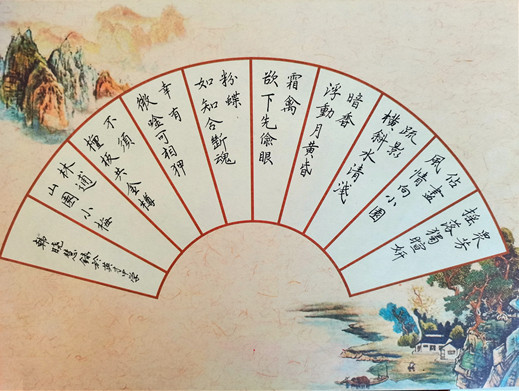 眾芳
搖落獨暄妍
佔盡
風情向小園
疏影
橫斜水清淺
暗香
浮動月黃昏
霜禽
欲下先偷眼
粉蝶
如知合斷魂
幸有
微吟可相狎
不須
檀板共金樽
林逋
山園小梅
韓曉慧錄於英才中学